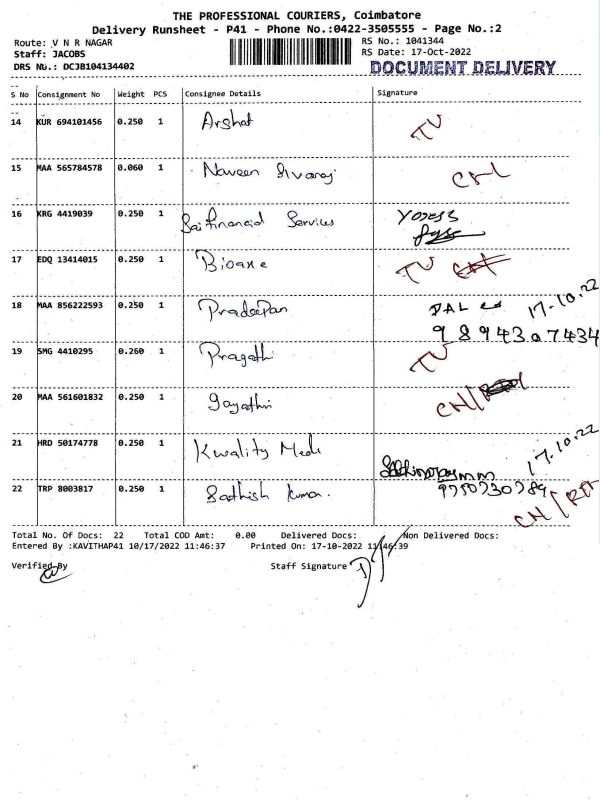 THE PROFESSIONAL COURIERS, Coimbatore
Delivery Runsheet - P41 - Phone No.:0422-3505555 - Page No.:2
Route: V N R NAGAR RS No.: 1041344
Staff: JACOBS RS Date: 17-Oct-2022
DRS No.: DCJB104134402 DOCUMENT DELIVERY
S No Consignment No Weight PCS Consignee Details Signature
14 KUR 694101456 0.250 1 Arshat TV
15 MAA 565784578 0.060 1 Naveen Sivaraj
16 KRG 4419039 0.250 1 Sai financial Services
17 EDQ 13414015 0.250 1 TV
18 MAA 856222593 0.250 1 Pradeepan 17.10.22
9894307434
19 SMG 4410295 0.260 1 Pragathi TV
20 MAA 561601832 0.250 1 gayathri CN/
21 HRD 50174778 0.250 1 Kwality Meds 17.10.22
22 TRP 8003817 0.250 1 Sathish Kumar. 9750730789 CN/
Total No. Of Docs: 22 Total COD Amt: 0.00 Delivered Docs: Non Delivered Docs:
Entered By :KAVITHAP41 10/17/2022 11:46:37 Printed On: 17-10-2022 11:46:39
Verified By Staff Signature